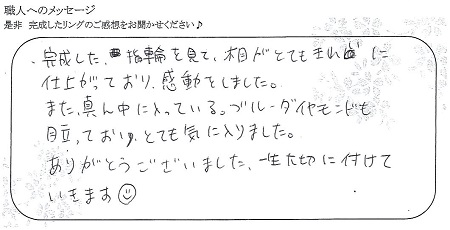 職人へのメッセージ
是非 完成したリングのご感想をお聞かせください♪
・完成した、指輪を見て、相がとてもきれいに
仕上がっており、感動をしました。
また、真ん中に入っている。ブルーダイヤモンドも
目立っており、とても気に入りました。
ありがとうございました、一生大切に付けて
いきます☺